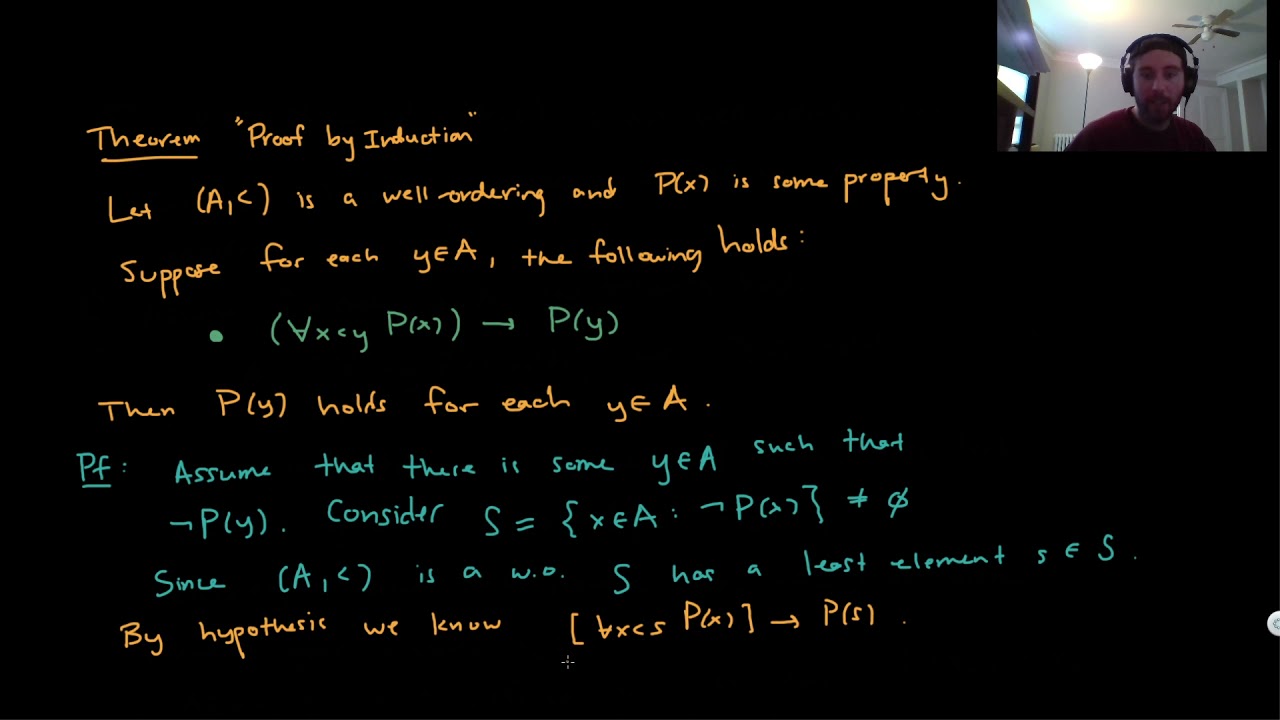 Theorem "Proof by Induction"
Let (A, <) is a well-ordering and P(x) is some property.
Suppose for each y∈A, the following holds:
• (∀x<y P(x)) → P(y)
Then P(y) holds for each y∈A.
Pf: Assume that there is some y∈A such that
¬P(y). Consider S = {x∈A : ¬P(x)} ≠ ∅
Since (A, <) is a w.o. S has a least element s ∈ S.
By hypothesis we know [∀x<s P(x)] → P(s).